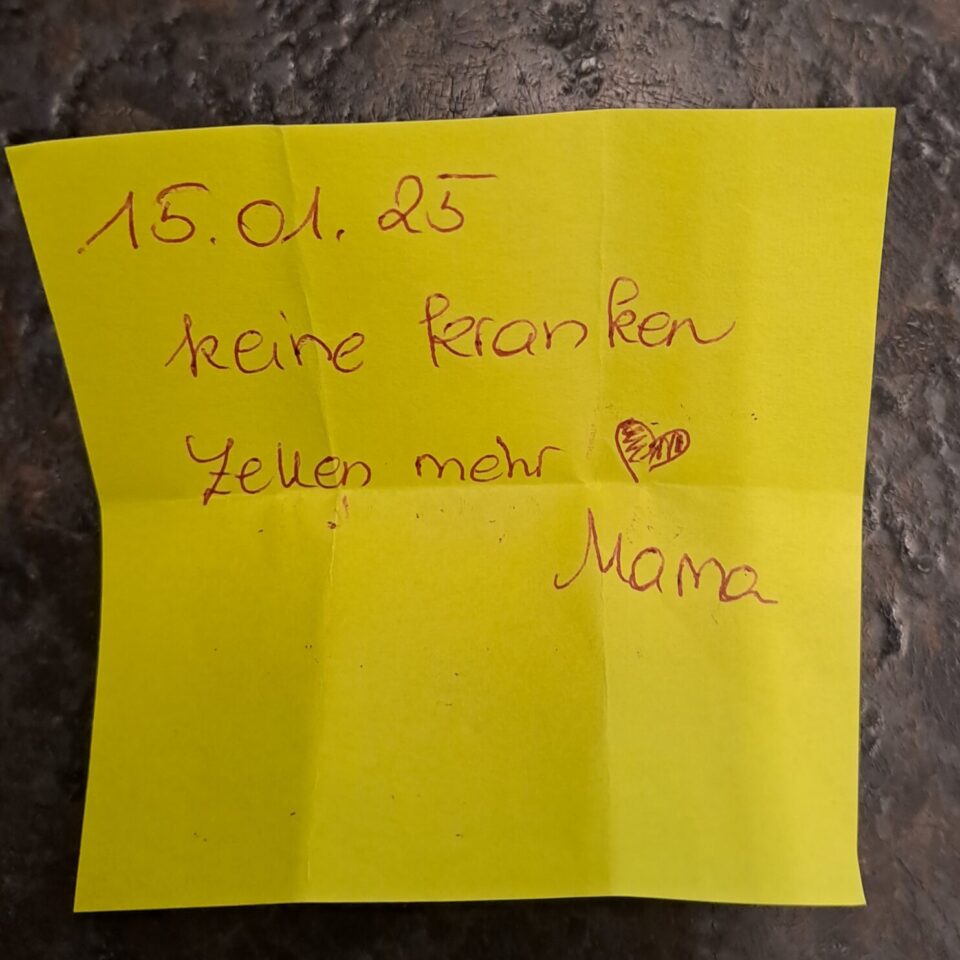 15.01.25
keine kranken
Zellen mehr ♥
Mama